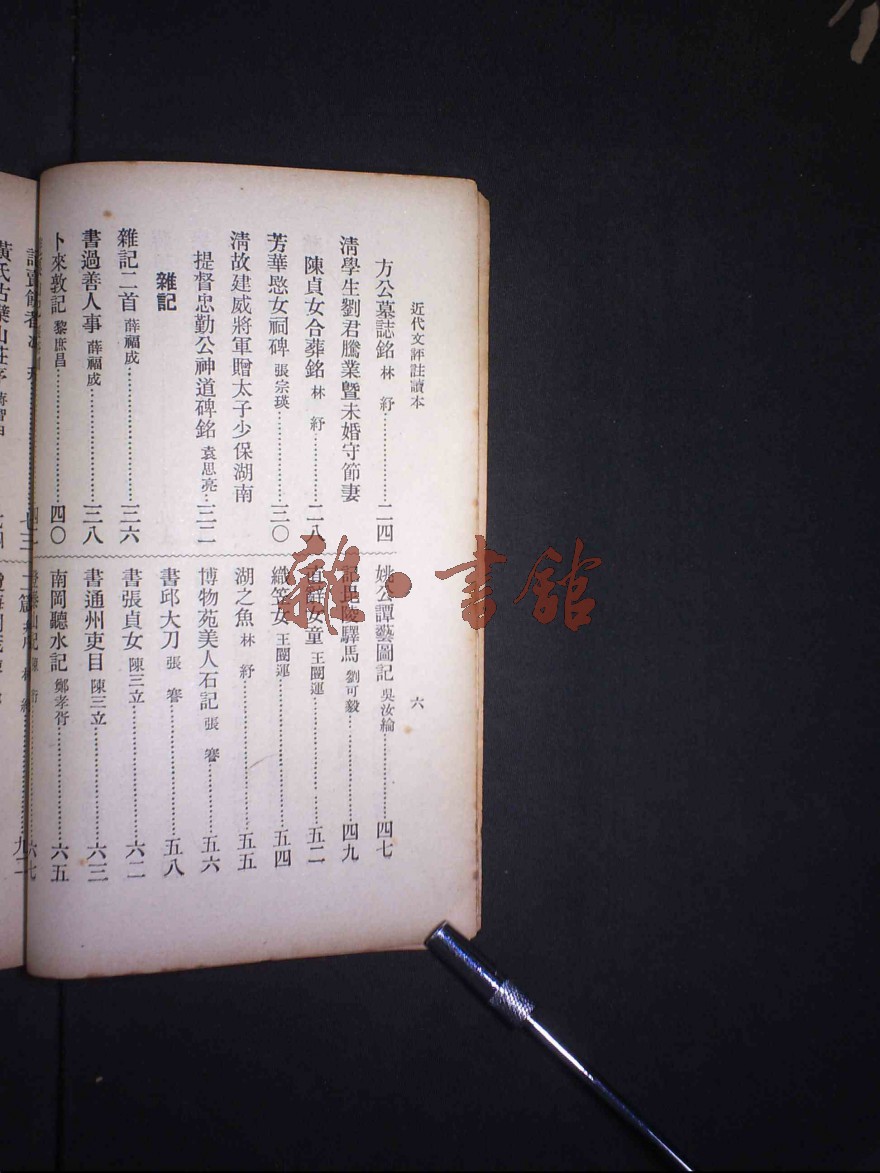 近代文評註讀本
六
方公墓誌銘 林 紓 二四
清學生劉君騰業暨未婚守節妻
陳貞女合葬銘 林 紓 二八
芳華愍女祠碑 張宗瑛 三〇
清故建威將軍贈太子少保湖南
提督忠勤公神道碑銘 袁思亮 三二
雜記
雜記二首 薛福成 三六
書過善人事 薛福成 三八
卜來敦記 黎庶昌 四〇
姚公譚藝圖記 吳汝綸 四七
驛馬 劉可毅 四九
女童 王闓運 五二
織笠女 王闓運 五四
湖之魚 林 紓 五五
博物苑美人石記 張 謇 五六
書邱大刀 張 謇 五八
書張貞女 陳三立 六二
書通州吏目 陳三立 六三
南岡聽水記 鄭孝胥 六五
六七
雜·書館